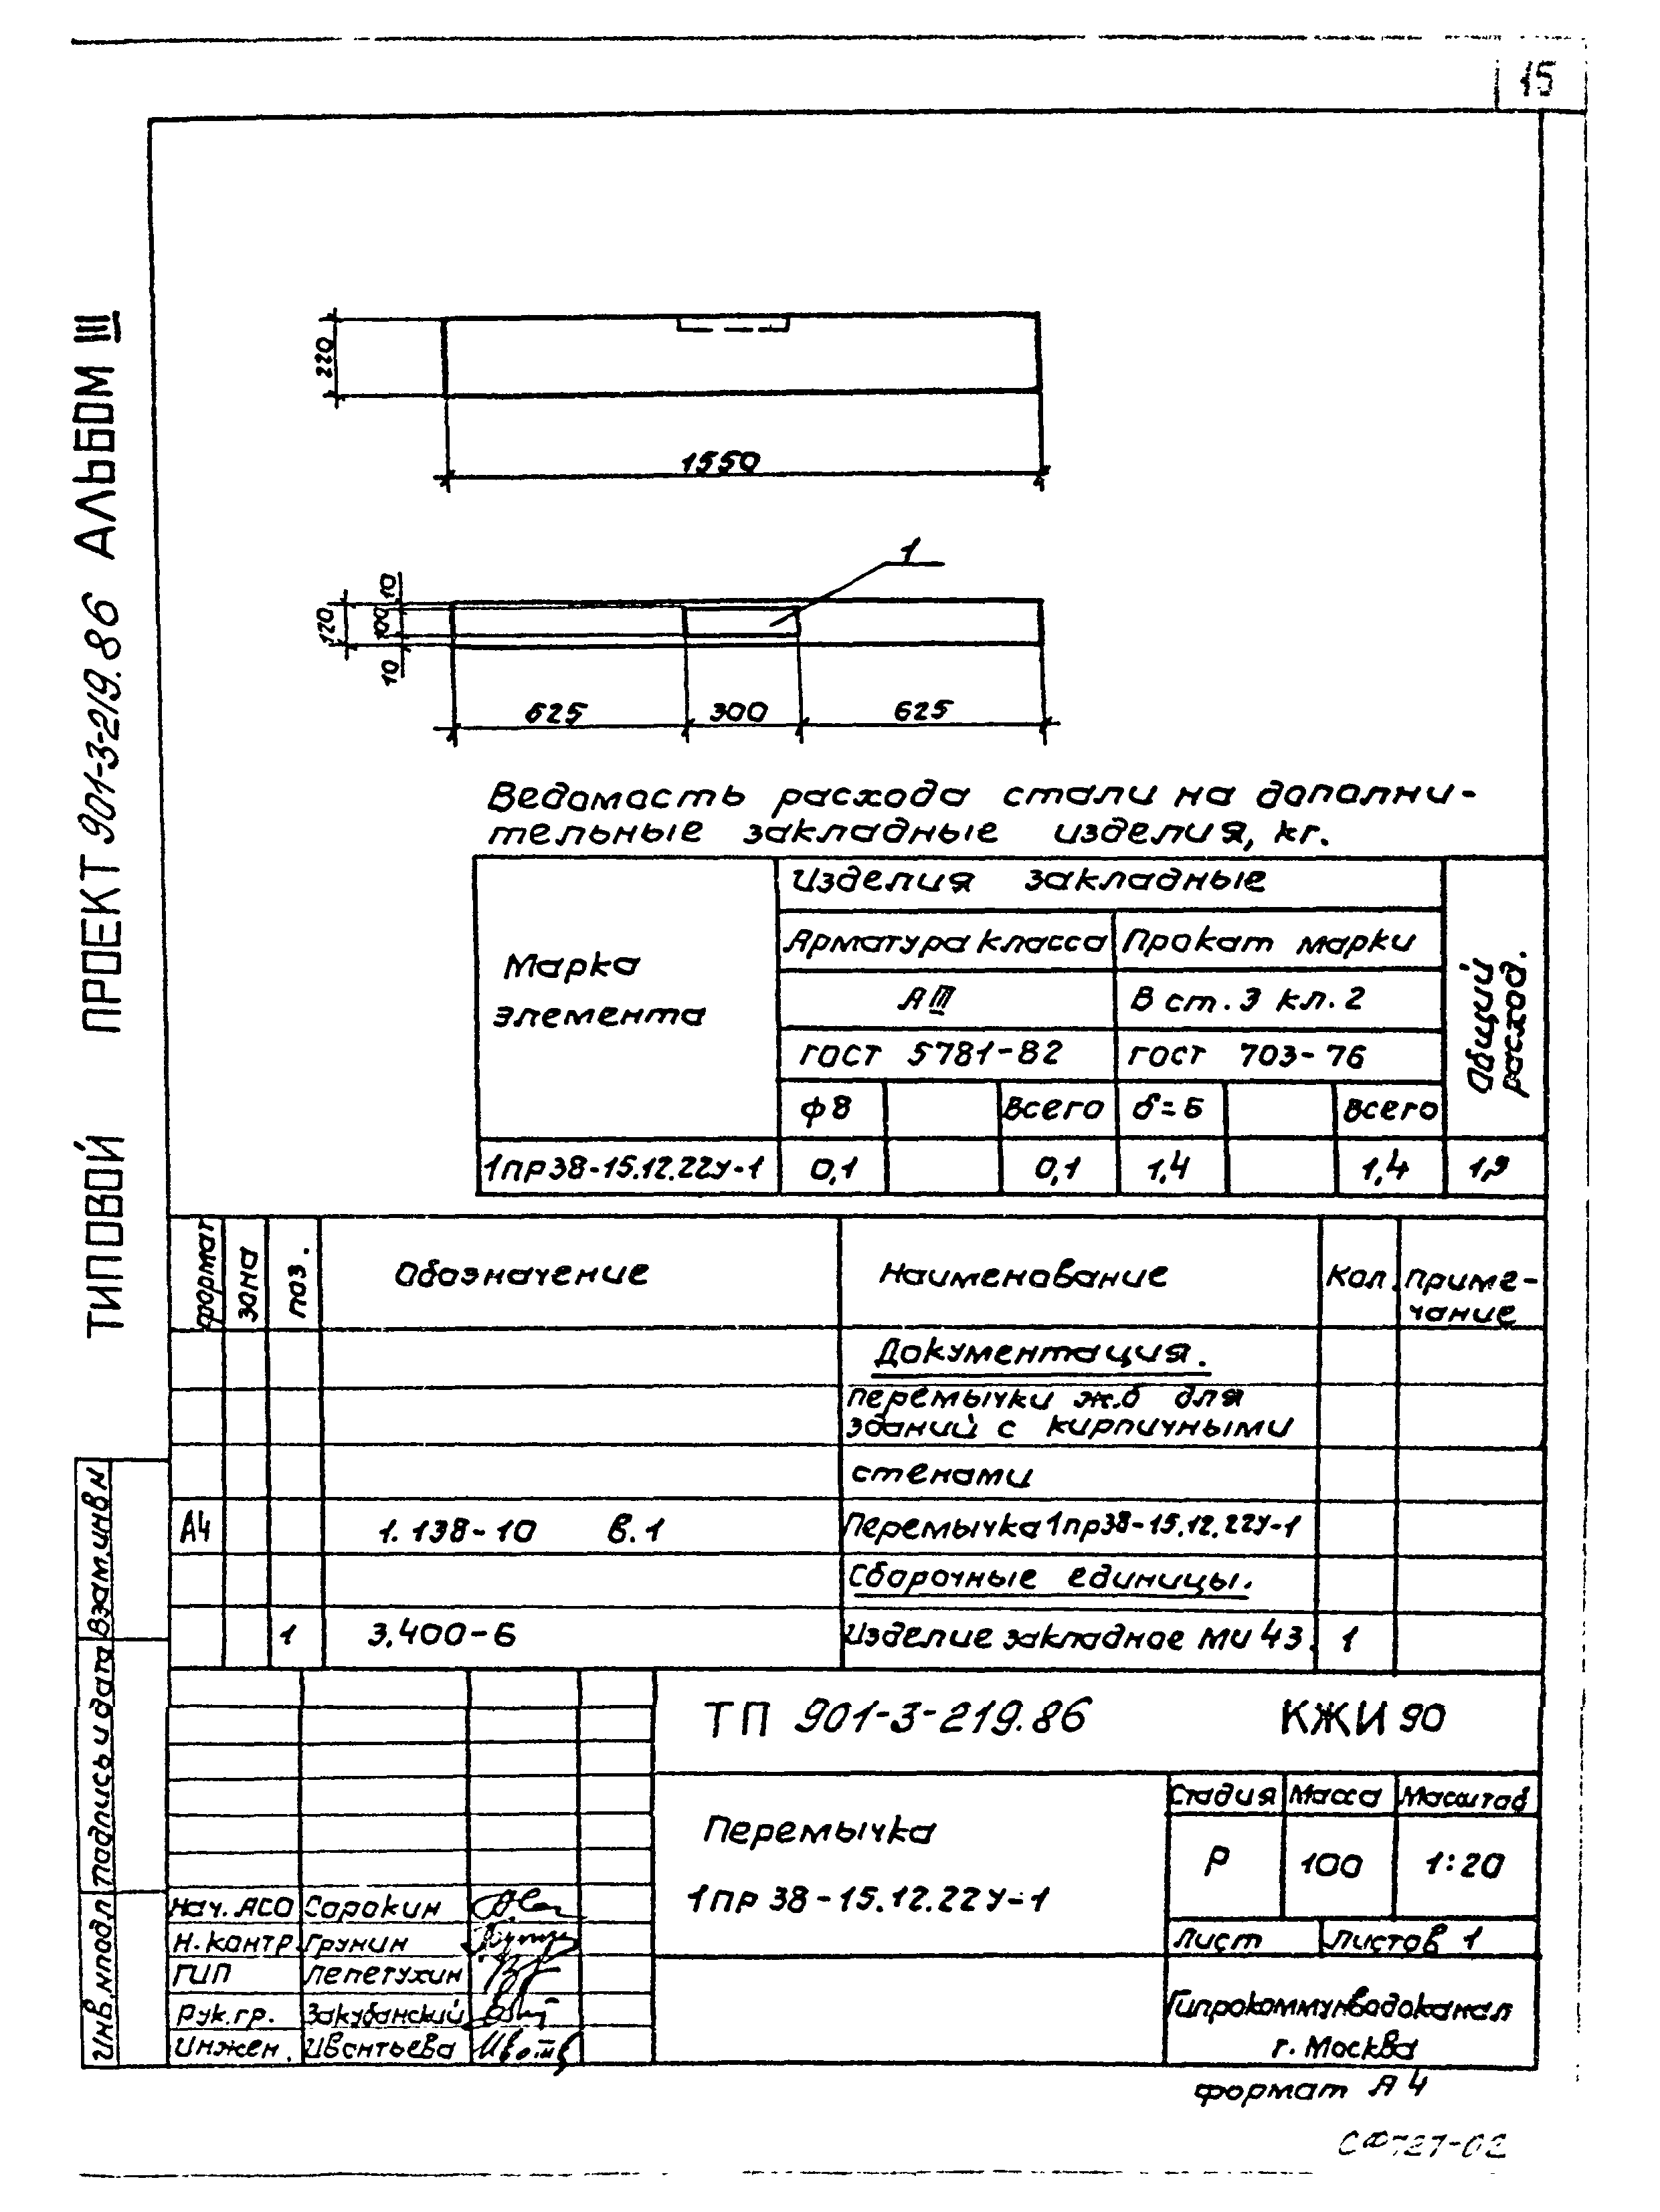 15
ТИПОВОЙ ПРОЕКТ 901-3-219.86 АЛЬБОМ III
220
1550
1
120
10
100
10
625
300
625
Ведомость расхода стали на дополни-
тельные закладные изделия, кг.
Марка
элемента
Изделия закладные
Общий
расход.
Арматура класса
Прокат марки
АIII
В ст. 3 кл. 2
ГОСТ 5781-82
ГОСТ 703-76
ф8
Всего
δ=6
Всего
1пр38-15.12.22у-1
0,1
0,1
1,4
1,4
1,9
формат
зона
поз.
Обозначение
Наименование
Кол.
Приме-
чание
Документация.
перемычки ж.б для
зданий с кирпичными
стенами
А4
1.138-10 в.1
Перемычка 1пр38-15.12.22у-1
Сборочные единицы.
1
3.400-6
Изделие закладное МИ 43.
1
Взам.инв.N
Подпись и дата
Инв.Nподл
ТП 901-3-219.86 КЖИ 90
Перемычка
1пр 38-15.12.22у-1
Стадия
Масса
Масштаб
Р
100
1:20
Лист
Листов 1
Гипрокоммунводоканал
г. Москва
Нач. АСО Сорокин
Н. контр. Грунин
ГИП Лепетухин
Рук. гр. Закубанский
Инжен. Ивентьева
формат А4